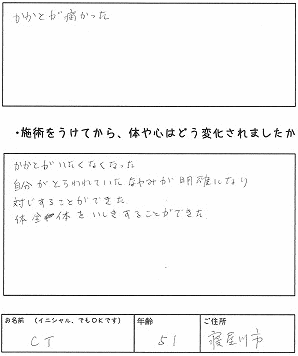 かかとが痛かった
・施術をうけてから、体や心はどう変化されましたか
かかとがいたくなくなった
自分がとらわれていたなやみが明確になり
対じすることができた
体全体をいしきすることができた
お名前 （イニシャル、でもOKです） 年齢 ご住所
CT 51 寝屋川市